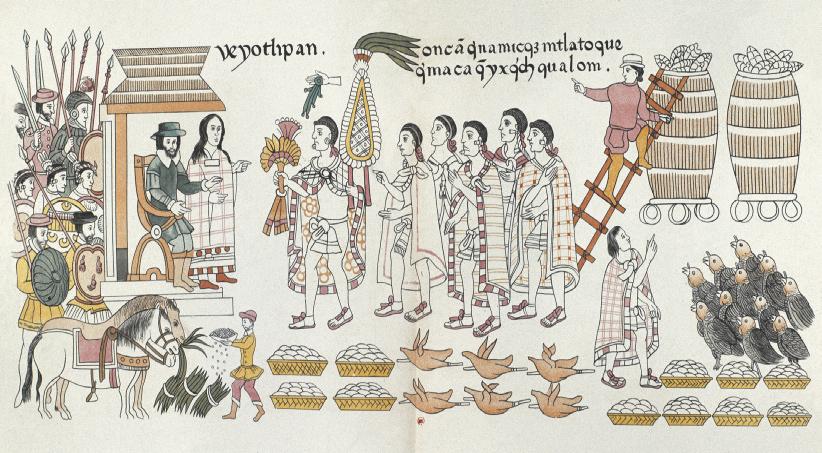 veyotlipan.
oncā q̄namicqȝ mtlatoque
q̄maca q̄yxq̄ch qualom.